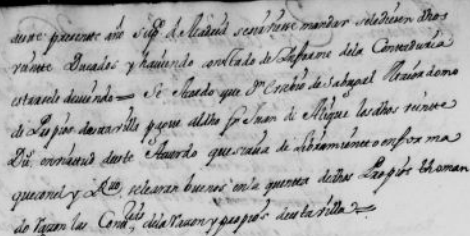 deste presente año Supp.ca d Madrid se sirviese mandar se le diesen dhos
veinte Ducados y haviendo constado de Informe dela Contaduria
estarsele deviendo = Se Acordo que Dn Eusebio de Sabugal Maiordomo
de Propios desta villa pague al dho Juan de Migue los dhos veinte
Ds. en virtud deste Acuerdo que sirva de Libramiento en forma
que con el y Rvo, se le aran buenos en la quenta de dhos Propios thoman
do razon las Contadas, dela razon y propios desta villa =